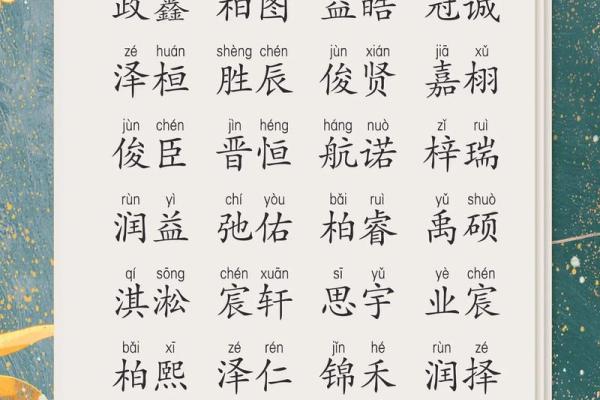 政鑫 柏图 益皓 冠诚
zé huán shèng chén jùn xián jiā xǔ
泽桓 胜辰 俊贤 嘉栩
jùn chén jìn héng háng nuò zǐ ruì
俊臣 晋恒 航诺 梓瑞
rùn yì chí yòu bǎi ruì yǔ shuò
润益 弛佑 柏睿 禹硕
qí sōng chén xuān sī yǔ yè chén
淇淞 宸轩 思宇 业宸
bǎi xī zé rén jǐn hé rùn zé
柏熙 泽仁 锦禾 润择